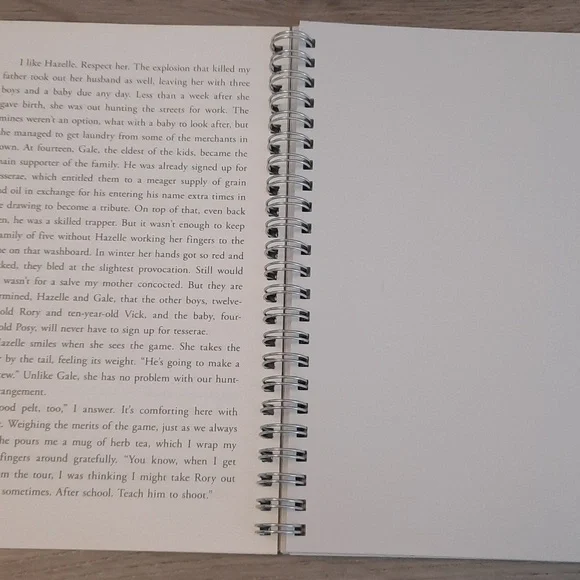 I like Hazelle. Respect her. The explosion that killed my
father took out her husband as well, leaving her with three
boys and a baby due any day. Less than a week after she
gave birth, she was out hunting the streets for work. The
mines weren't an option, what with a baby to look after, but
she managed to get laundry from some of the merchants in
own. At fourteen, Gale, the eldest of the kids, became the
ain supporter of the family. He was already signed up for
sserae, which entitled them to a meager supply of grain
d oil in exchange for his entering his name extra times in
e drawing to become a tribute. On top of that, even back
en, he was a skilled trapper. But it wasn't enough to keep
family of five without Hazelle working her fingers to the
e on that washboard. In winter her hands got so red and
ked, they bled at the slightest provocation. Still would
wasn't for a salve my mother concocted. But they are
rmined, Hazelle and Gale, that the other boys, twelve-
old Rory and ten-year-old Vick, and the baby, four-
old Posy, will never have to sign up for tesserae.
azelle smiles when she sees the game. She takes the
r by the tail, feeling its weight. "He's going to make a
tew." Unlike Gale, she has no problem with our hunt-
rangement.
ood pelt, too," I answer. It's comforting here with
. Weighing the merits of the game, just as we always
he pours me a mug of herb tea, which I wrap my
fingers around gratefully. "You know, when I get
m the tour, I was thinking I might take Rory out
sometimes. After school. Teach him to shoot."